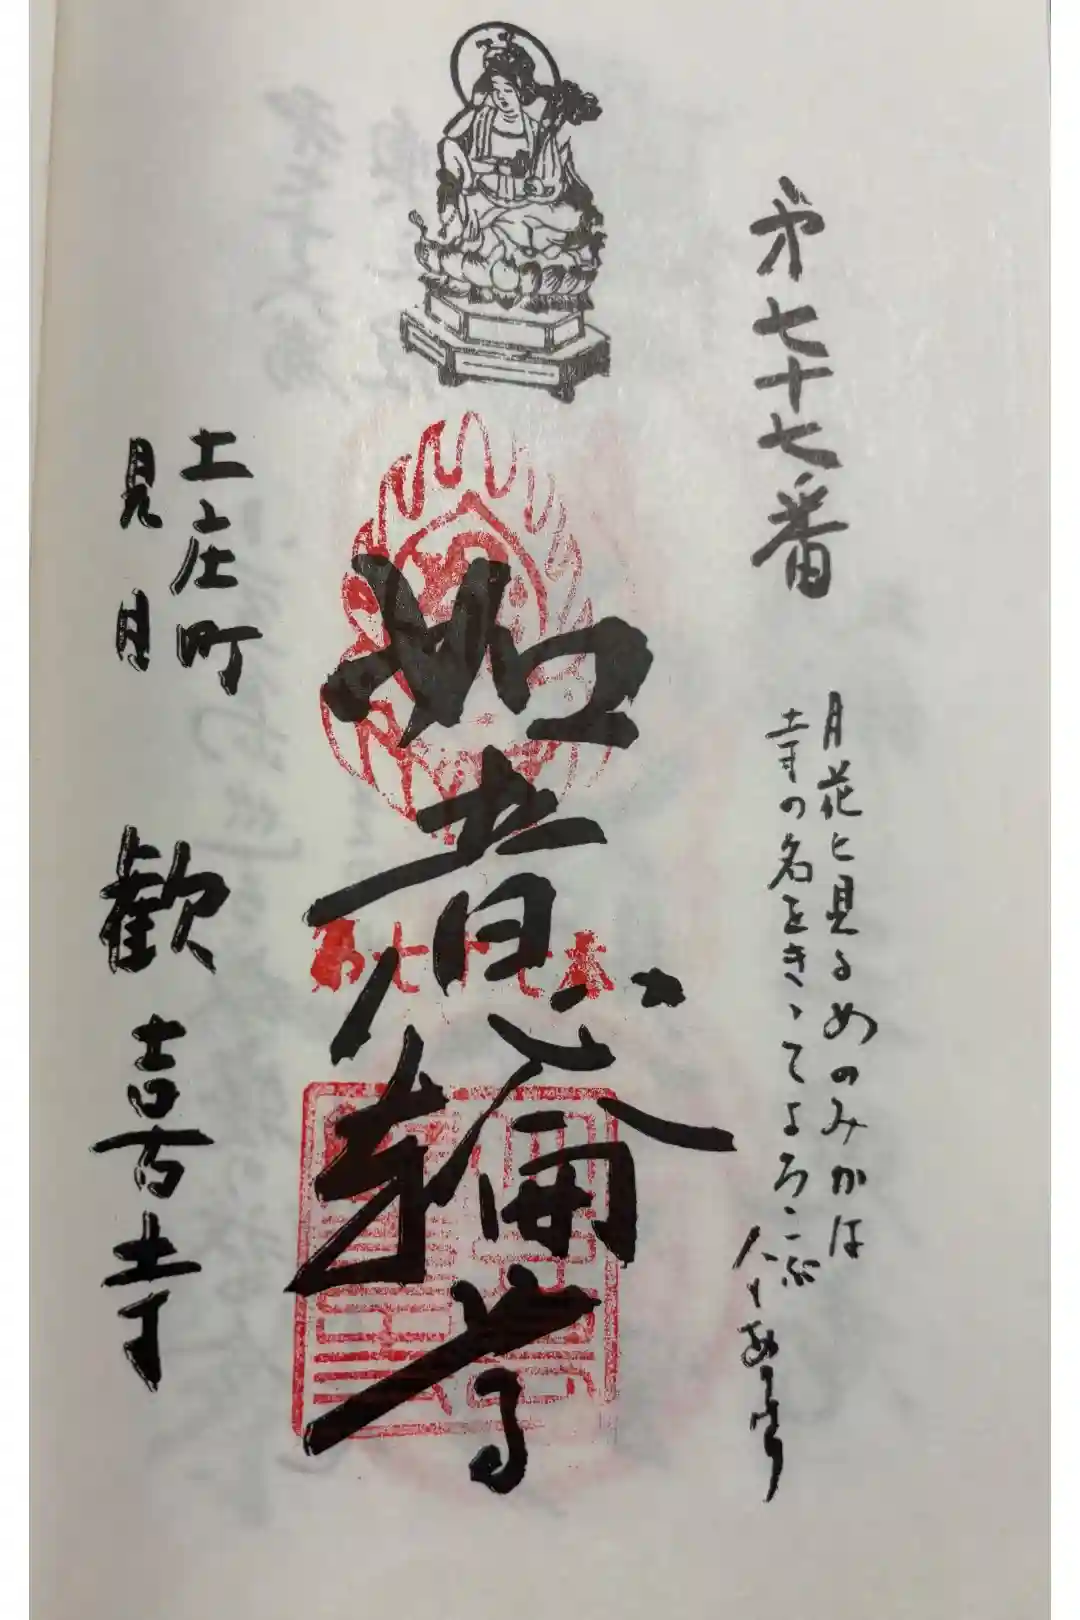 第七十七番
月花と見るめのみかは
寺の名をきゝてよろこぶ
人もあり
如意輪寺
第七十七番
土庄町
見目
歓喜寺